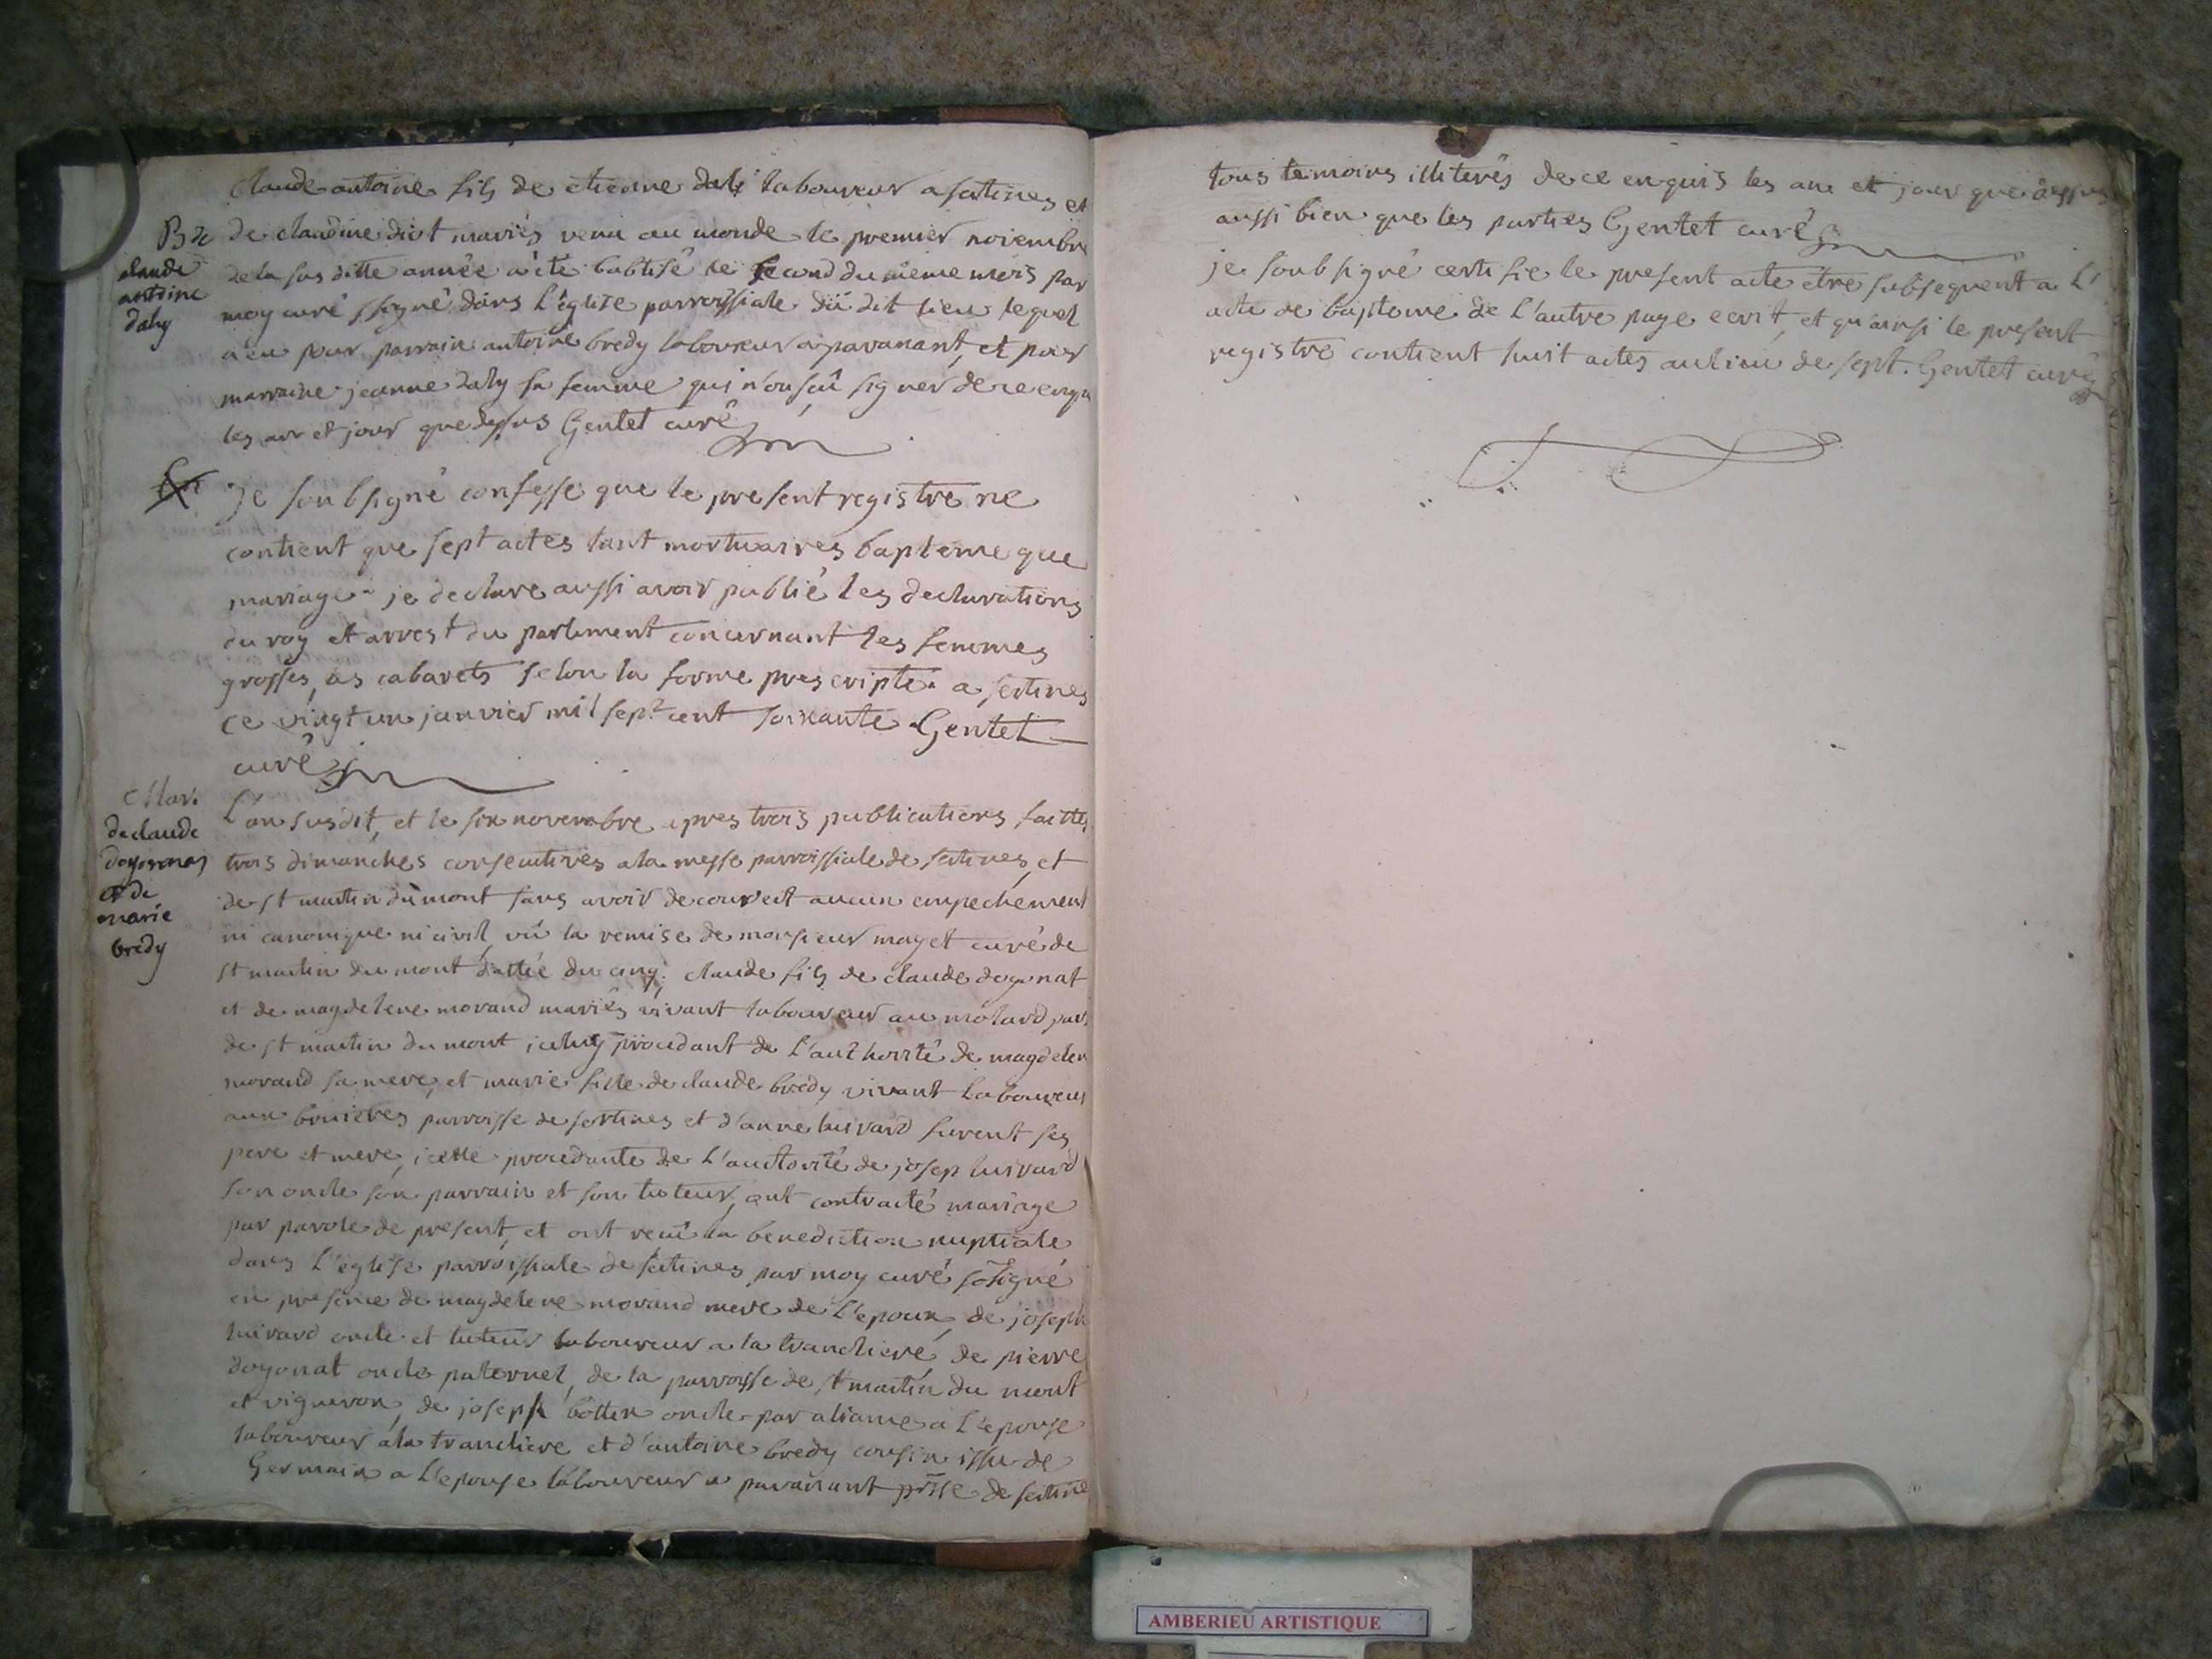 Claude antoine fils de etienne dali laboureur a sertines et
de claudine diot mariés venu au monde le premier novembre
de la sus ditte année a été baptisé le second du même mois par
moy curé ssigné dans L'église parroissiale du dit lieu lequel
a eu pour parrain antoine bredy laboureur a pavanant, et pour
marraine jeanne daly sa femme qui n'ont sçû signer de ce enqu
les an et jour que dessus Gentet curé
B de
claude
antoine
daly
Je soubsigné confesse que le present registre ne
contient que sept actes tant mortuaires bapteme que
mariage je declare aussi avoir publié les declarations
du roy et arrest du parlement concernant les femmes
grosses, les cabarets selon la forme prescripte a sertines
ce vingt un janvier mil sept cent soixante Gentet
curé
Mar.
de claude
dogonnas
et de
marie
bredy
L'an susdit, et le six novembre apres trois publications faittes
trois dimanches consecutives a la messe parroissiale de sertines, et
de st martin du mont sans avoir decouvert aucun empechement
ni canonique ni civil, vû la remise de monsieur mayet curé de
st martin du mont dattée du cinq; claude fils de claude dogonat
et de magdelene morand mariés vivant laboureur au molard parr
de st martin du mont iceluy procedant de L'authorité de magdelen
morand sa mere, et marie fille de claude bredy vivant Laboureur
aux bruieres parroisse de sertines et d'anne luivard furent ses
pere et mere, icelle procedante de L'auctorité de josep luivard
son oncle son parrain et son tuteur, ont contracté mariage
par parole de present, et ont recû la benediction nuptiale
dans L'église parroissiale de sertines par moy curé sosigné
en presence de magdelene morand mere de L'epoux, de joseph
luivard oncle et tuteur laboureur a la trancliere, de pierre
dogonat oncle paternel, de la parroisse de st martin du mont
et vigneron, de joseph bottex oncle par aliance a L'epouse
laboureur a la trancliere et d'antoine bredy cousin issu de
Germain a L'epouse laboureur a pavanant prsse de sertine
tous temoins illiterés de ce enquis les an et jour que dessus
aussi bien que les parties Gentet curé
je soubsigné certifie le present acte etre subsequent a L'
acte de baptome de L'autre page ecrit, et qu'ainsi le present
registre contient huit actes au lieu de sept. Gentet curé
AMBERIEU ARTISTIQUE